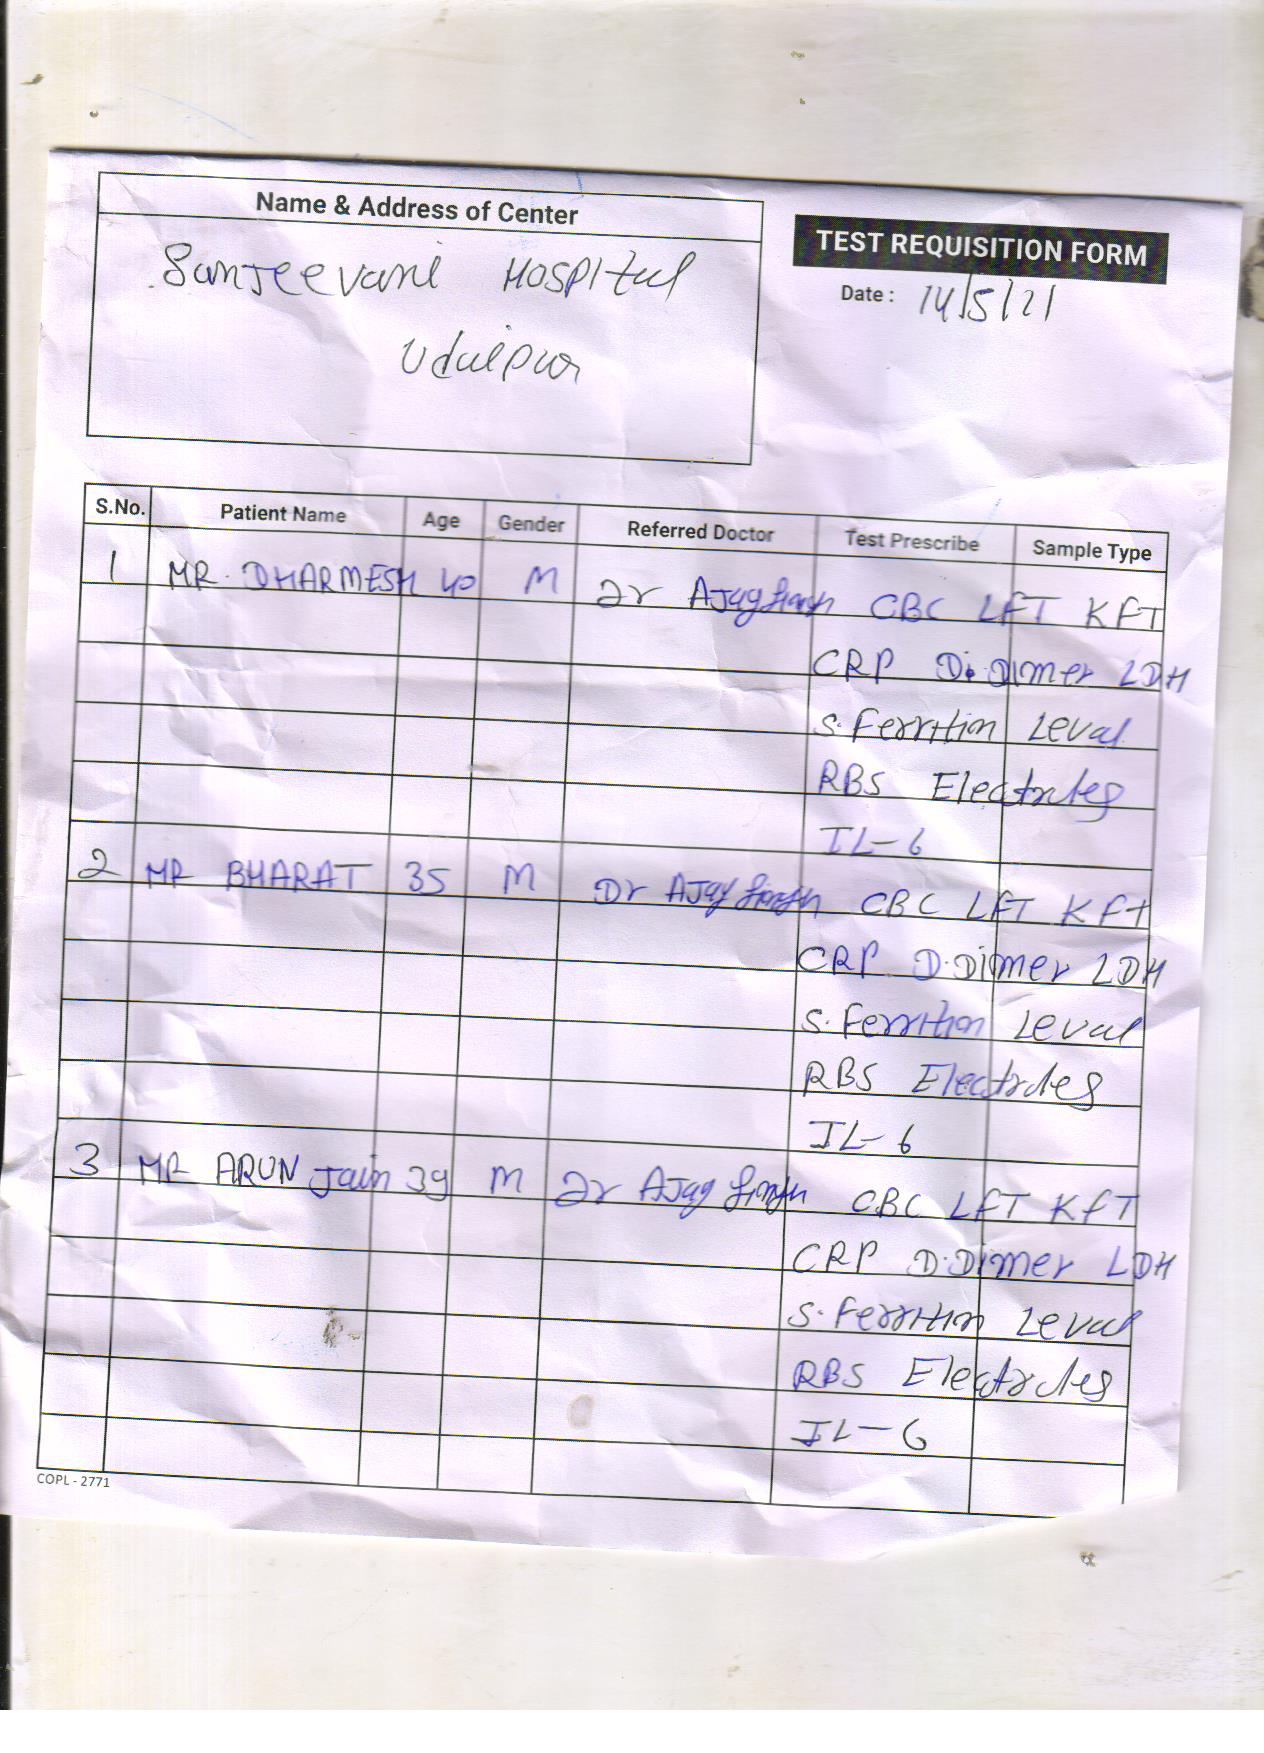 Name & Address of Center
Sanjeevani Hospital
Udaipur
TEST REQUISITION FORM
Date : 14/5/21
S.No. Patient Name Age Gender Referred Doctor Test Prescribe Sample Type
1 MR. DHARMESH 40 M Dr Ajay Singh CBC LFT KFT
CRP D.Dimer LDH
S.Ferrition Leval
RBS Electrutes
IL-6
2 MR BHARAT 35 M Dr AJay Singh CBC LFT KFT
CRP D.Dimer LDH
S.Ferrition Leval
RBS Electrutes
IL-6
3 MR ARUN Jain 39 M Dr AJay Singh CBC LFT KFT
CRP D.Dimer LDH
S.Ferrition Leval
RBS Electrutes
IL-6
COPL - 2771